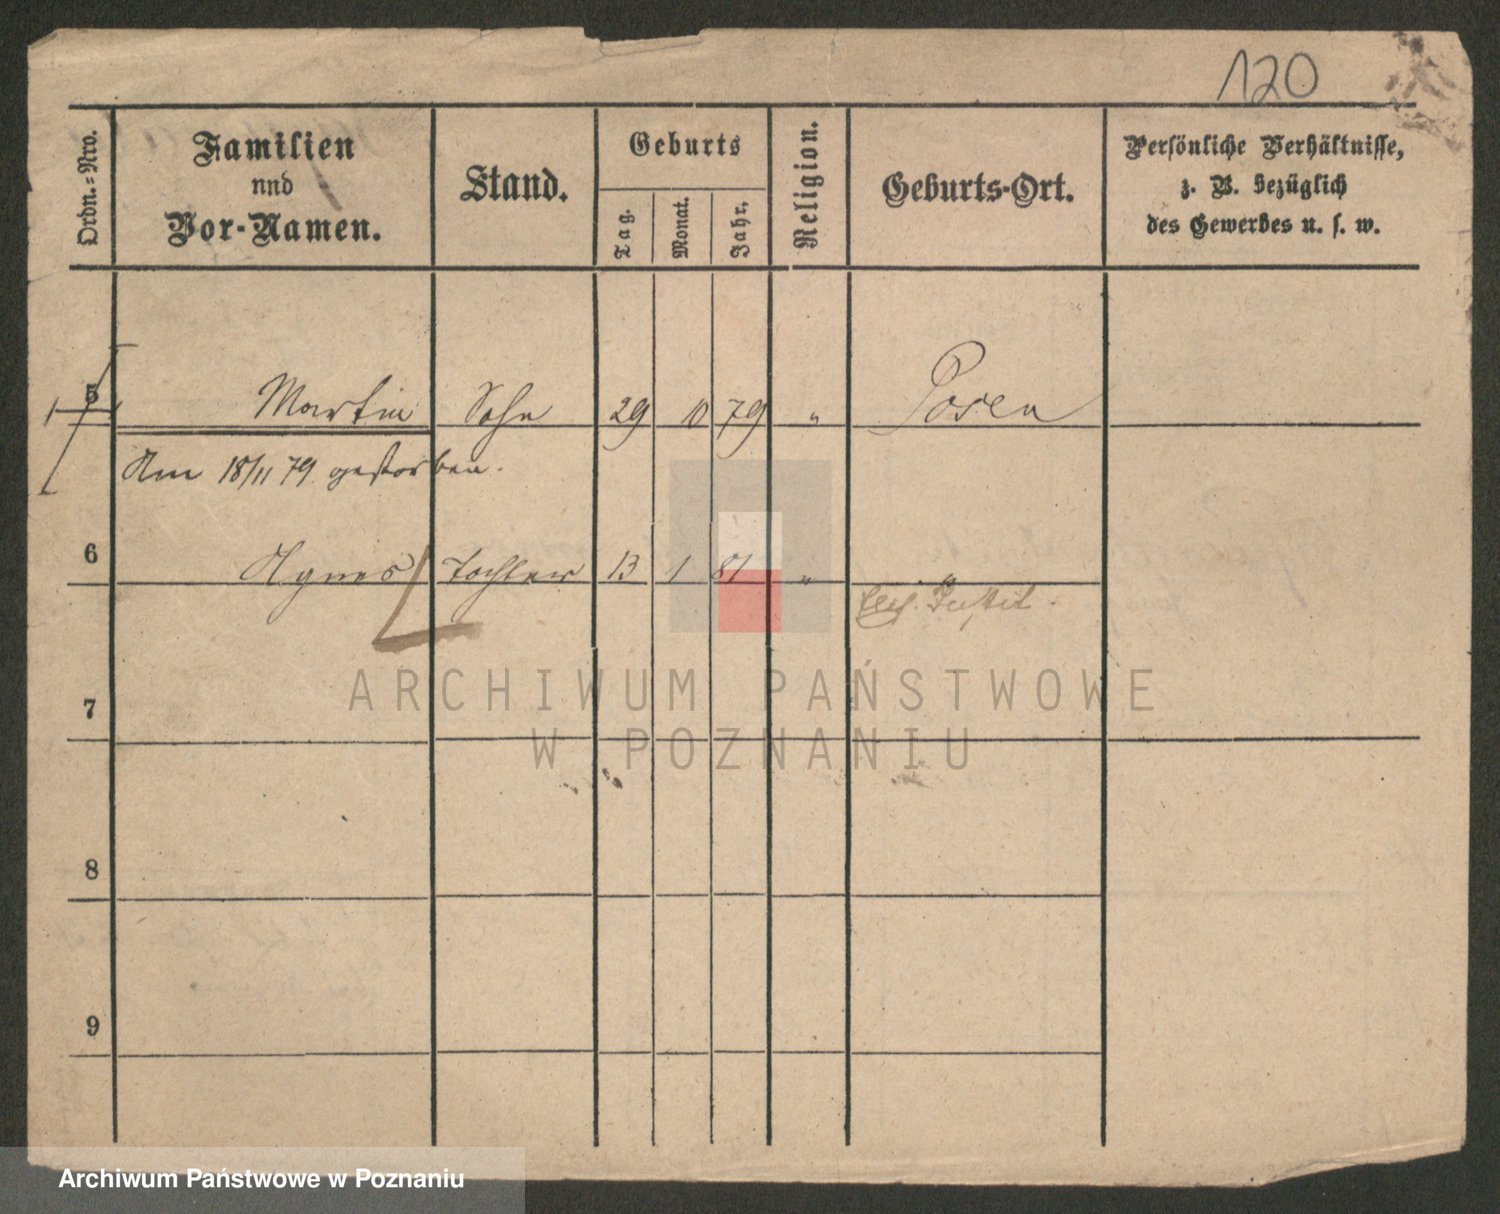 120
Ordn.-Nro.
Familien
nnd
Vor-Namen.
Stand.
Geburts
Tag.
Monat.
Jahr.
Religion.
Geburts-Ort.
Persönliche Verhältnisse,
z. B. bezüglich
des Gewerbes u. s. w.
5 Martin Sohn 29 10 79 " Posen
Am 18/11 79 gestorben.
6 Agnes Tochter 13 1 81 "
7
8
9
ARCHIWUM PAŃSTWOWE
W POZNANIU
Archiwum Państwowe w Poznaniu